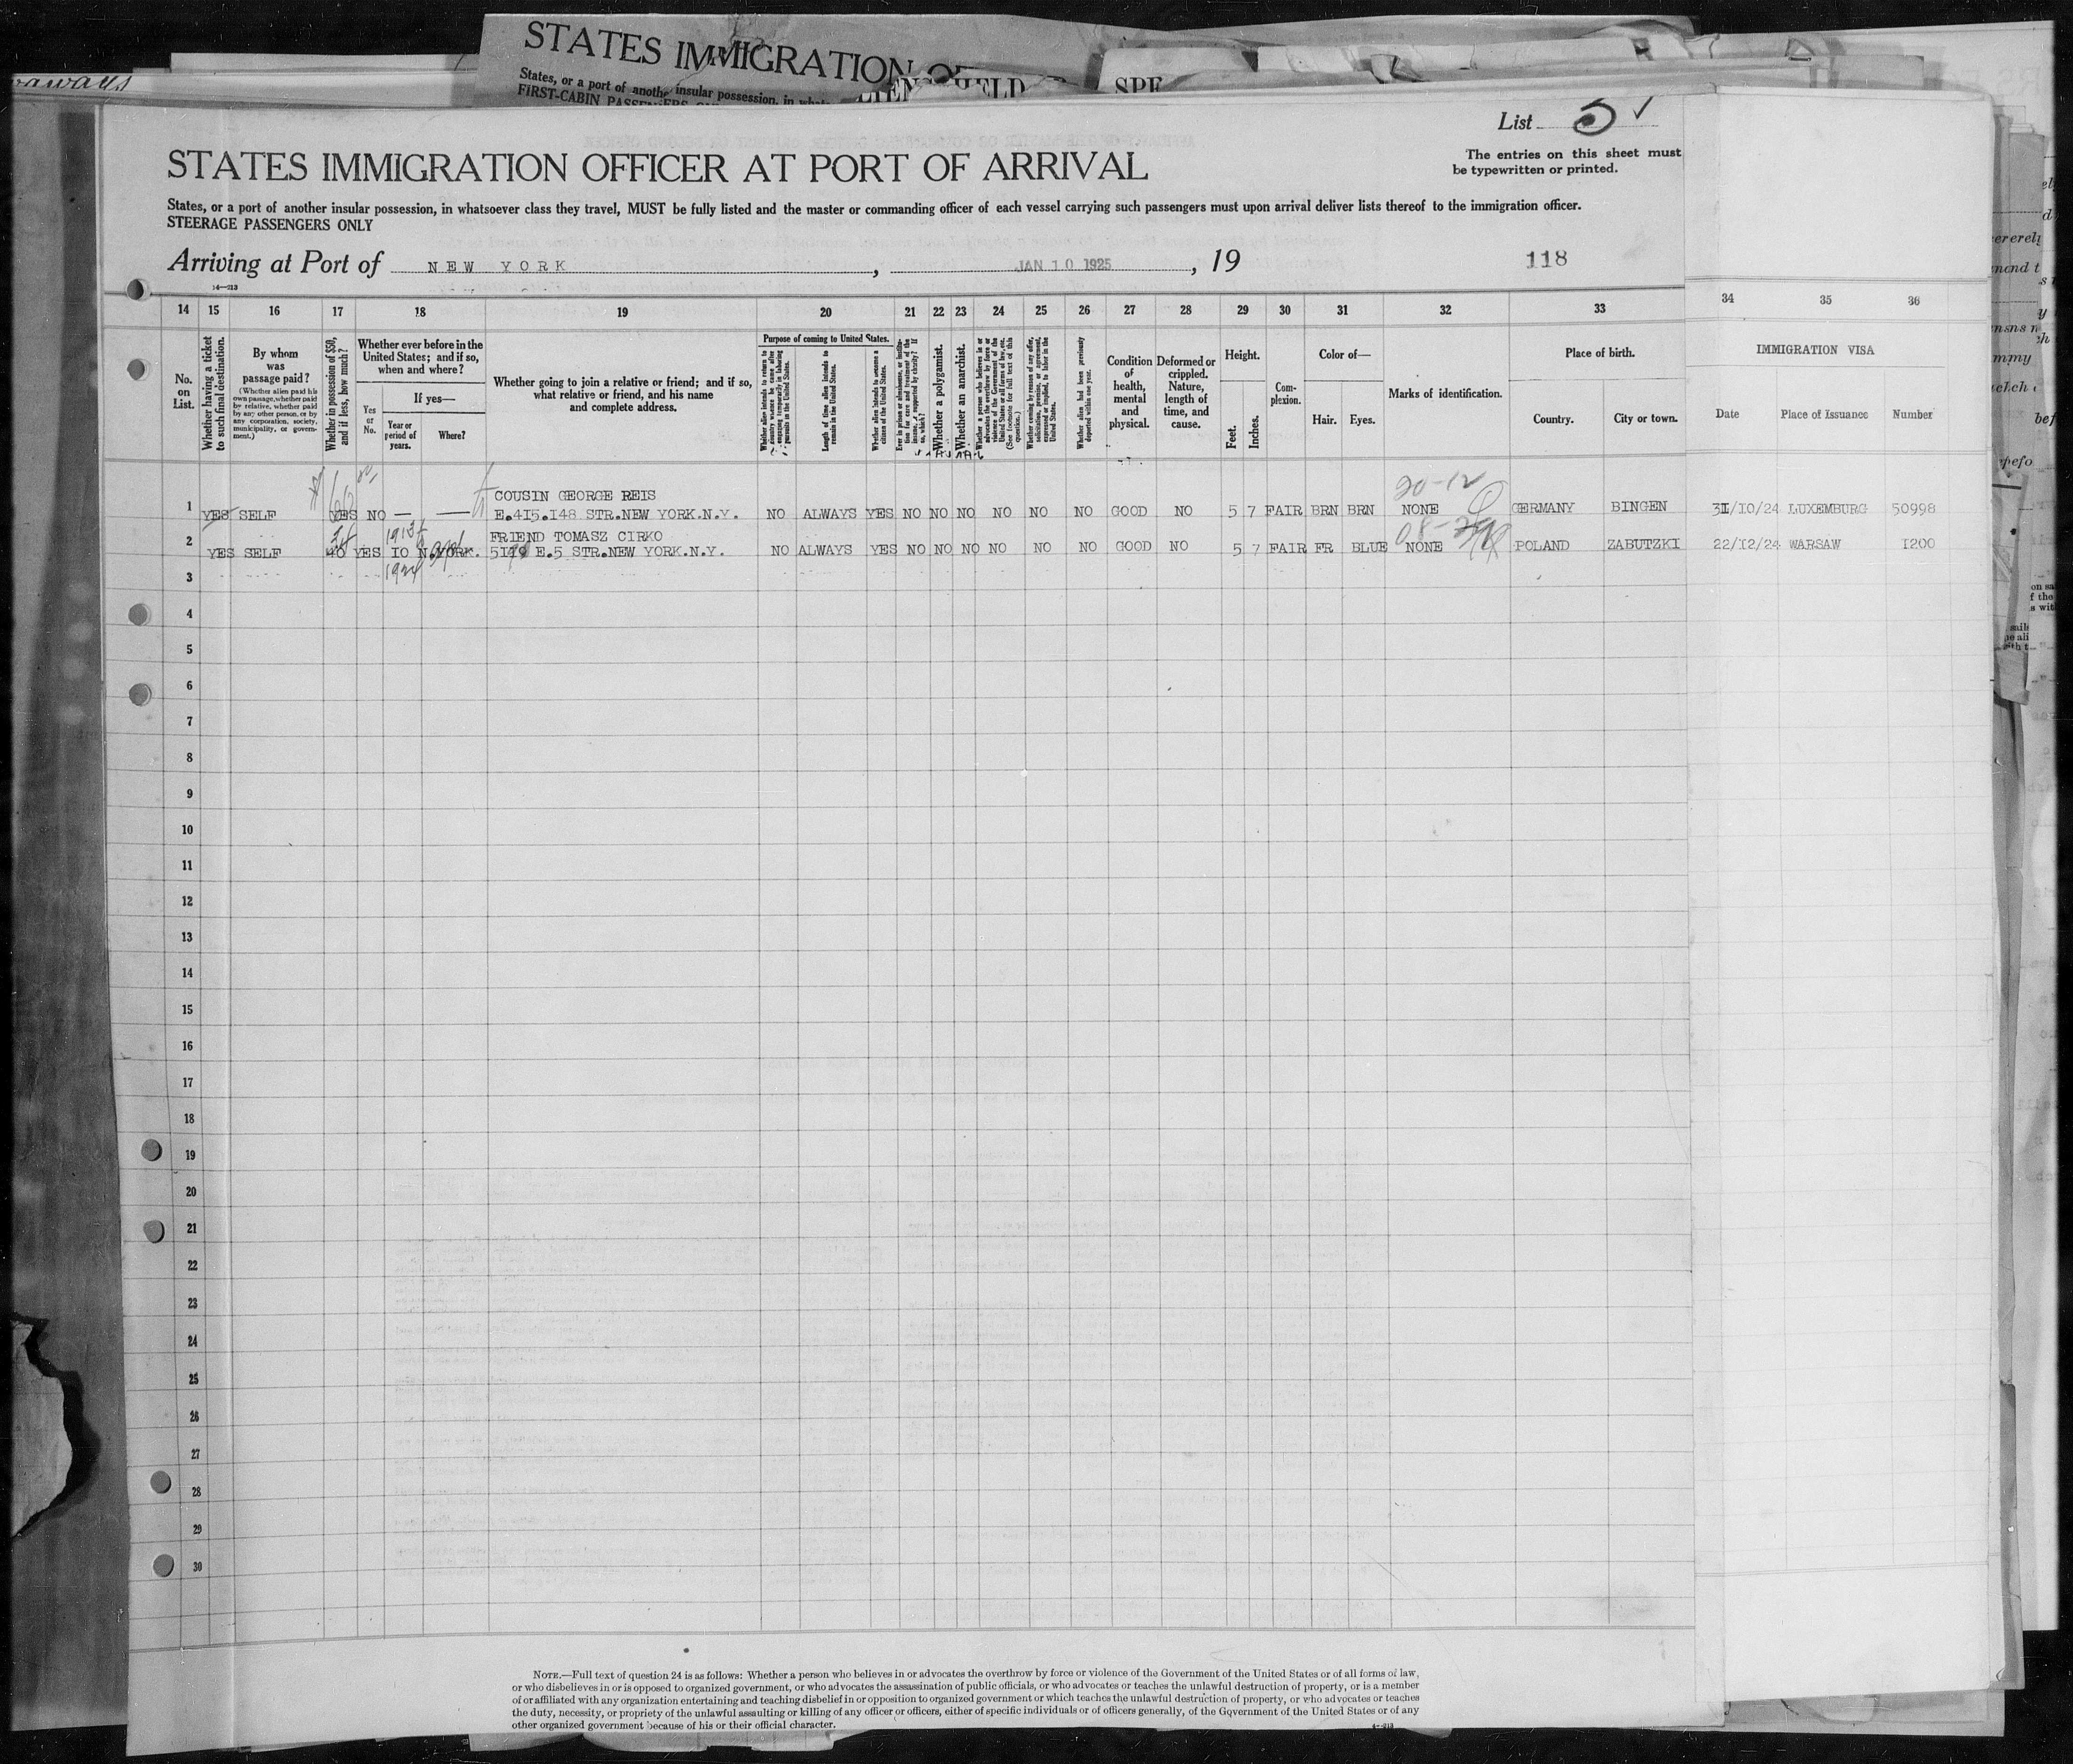 STATES IMMIGRATION OF
States, or a port of another insular possession, in what
FIRST-CABIN PASSENGERS
HELD
SPE
List 5 ✓
The entries on this sheet must
be typewritten or printed.
STATES IMMIGRATION OFFICER AT PORT OF ARRIVAL
States, or a port of another insular possession, in whatsoever class they travel, MUST be fully listed and the master or commanding officer of each vessel carrying such passengers must upon arrival deliver lists thereof to the immigration officer.
STEERAGE PASSENGERS ONLY
Arriving at Port of NEW YORK, JAN 10 1925, 19 118
14—213
14 15 16 17 18 19 20 21 22 23 24 25 26 27 28 29 30 31 32 33 34 35 36
No. on List.
Whether having a ticket to such final destination.
By whom was passage paid?
(Whether alien paid his own passage, whether paid by relative, whether paid by any other person, or by any corporation, society, municipality, or government.)
Whether in possession of $50, and if less, how much?
Whether ever before in the United States; and if so, when and where?
Yes or No.
If yes—
Year or period of years.
Where?
Whether going to join a relative or friend; and if so, what relative or friend, and his name and complete address.
Purpose of coming to United States.
Length of time alien intends to remain in the United States.
Whether alien intends to become a citizen of the United States.
Whether a polygamist.
Whether an anarchist.
Whether coming by reason of any offer, solicitation, promise, or agreement, expressed or implied, to labor in the United States.
Whether alien had been previously deported within one year.
Condition of health, mental and physical.
Deformed or crippled. Nature, length of time, and cause.
Height.
Feet. Inches.
Complexion.
Color of—
Hair. Eyes.
Marks of identification.
Place of birth.
Country. City or town.
IMMIGRATION VISA
Date Place of Issuance Number
20-12
COUSIN GEORGE REIS
1 YES SELF YES NO — — E.415.148 STR.NEW YORK.N.Y. NO ALWAYS YES NO NO NO NO NO NO GOOD NO 5 7 FAIR BRN BRN NONE GERMANY BINGEN 31/10/24 LUXEMBURG 50998
1913
FRIEND TOMASZ CIRKO
2 YES SELF 40 YES 10 N.YORK. E.5 STR.NEW YORK.N.Y. NO ALWAYS YES NO NO NO NO NO NO GOOD NO 5 7 FAIR FR BLUE NONE POLAND ZABUTZKI 22/12/24 WARSAW 1200
1924
3
4
5
6
7
8
9
10
11
12
13
14
15
16
17
18
19
20
21
22
23
24
25
26
27
28
29
30
NOTE.—Full text of question 24 is as follows: Whether a person who believes in or advocates the overthrow by force or violence of the Government of the United States or of all forms of law,
or who disbelieves in or is opposed to organized government, or who advocates the assassination of public officials, or who advocates or teaches the unlawful destruction of property, or is a member
of or affiliated with any organization entertaining and teaching disbelief in or opposition to organized government or which teaches the unlawful destruction of property, or who advocates or teaches
the duty, necessity, or propriety of the unlawful assaulting or killing of any officer or officers, either of specific individuals or of officers generally, of the Government of the United States or of any
other organized government because of his or their official character.